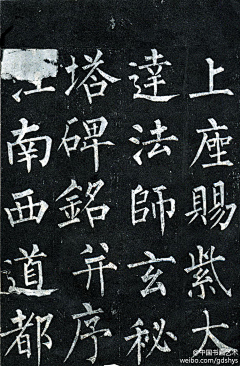 上座賜紫大
達法師玄秘
塔碑銘并序
江南西道都
@中国书画艺术
weibo.com/gdshys